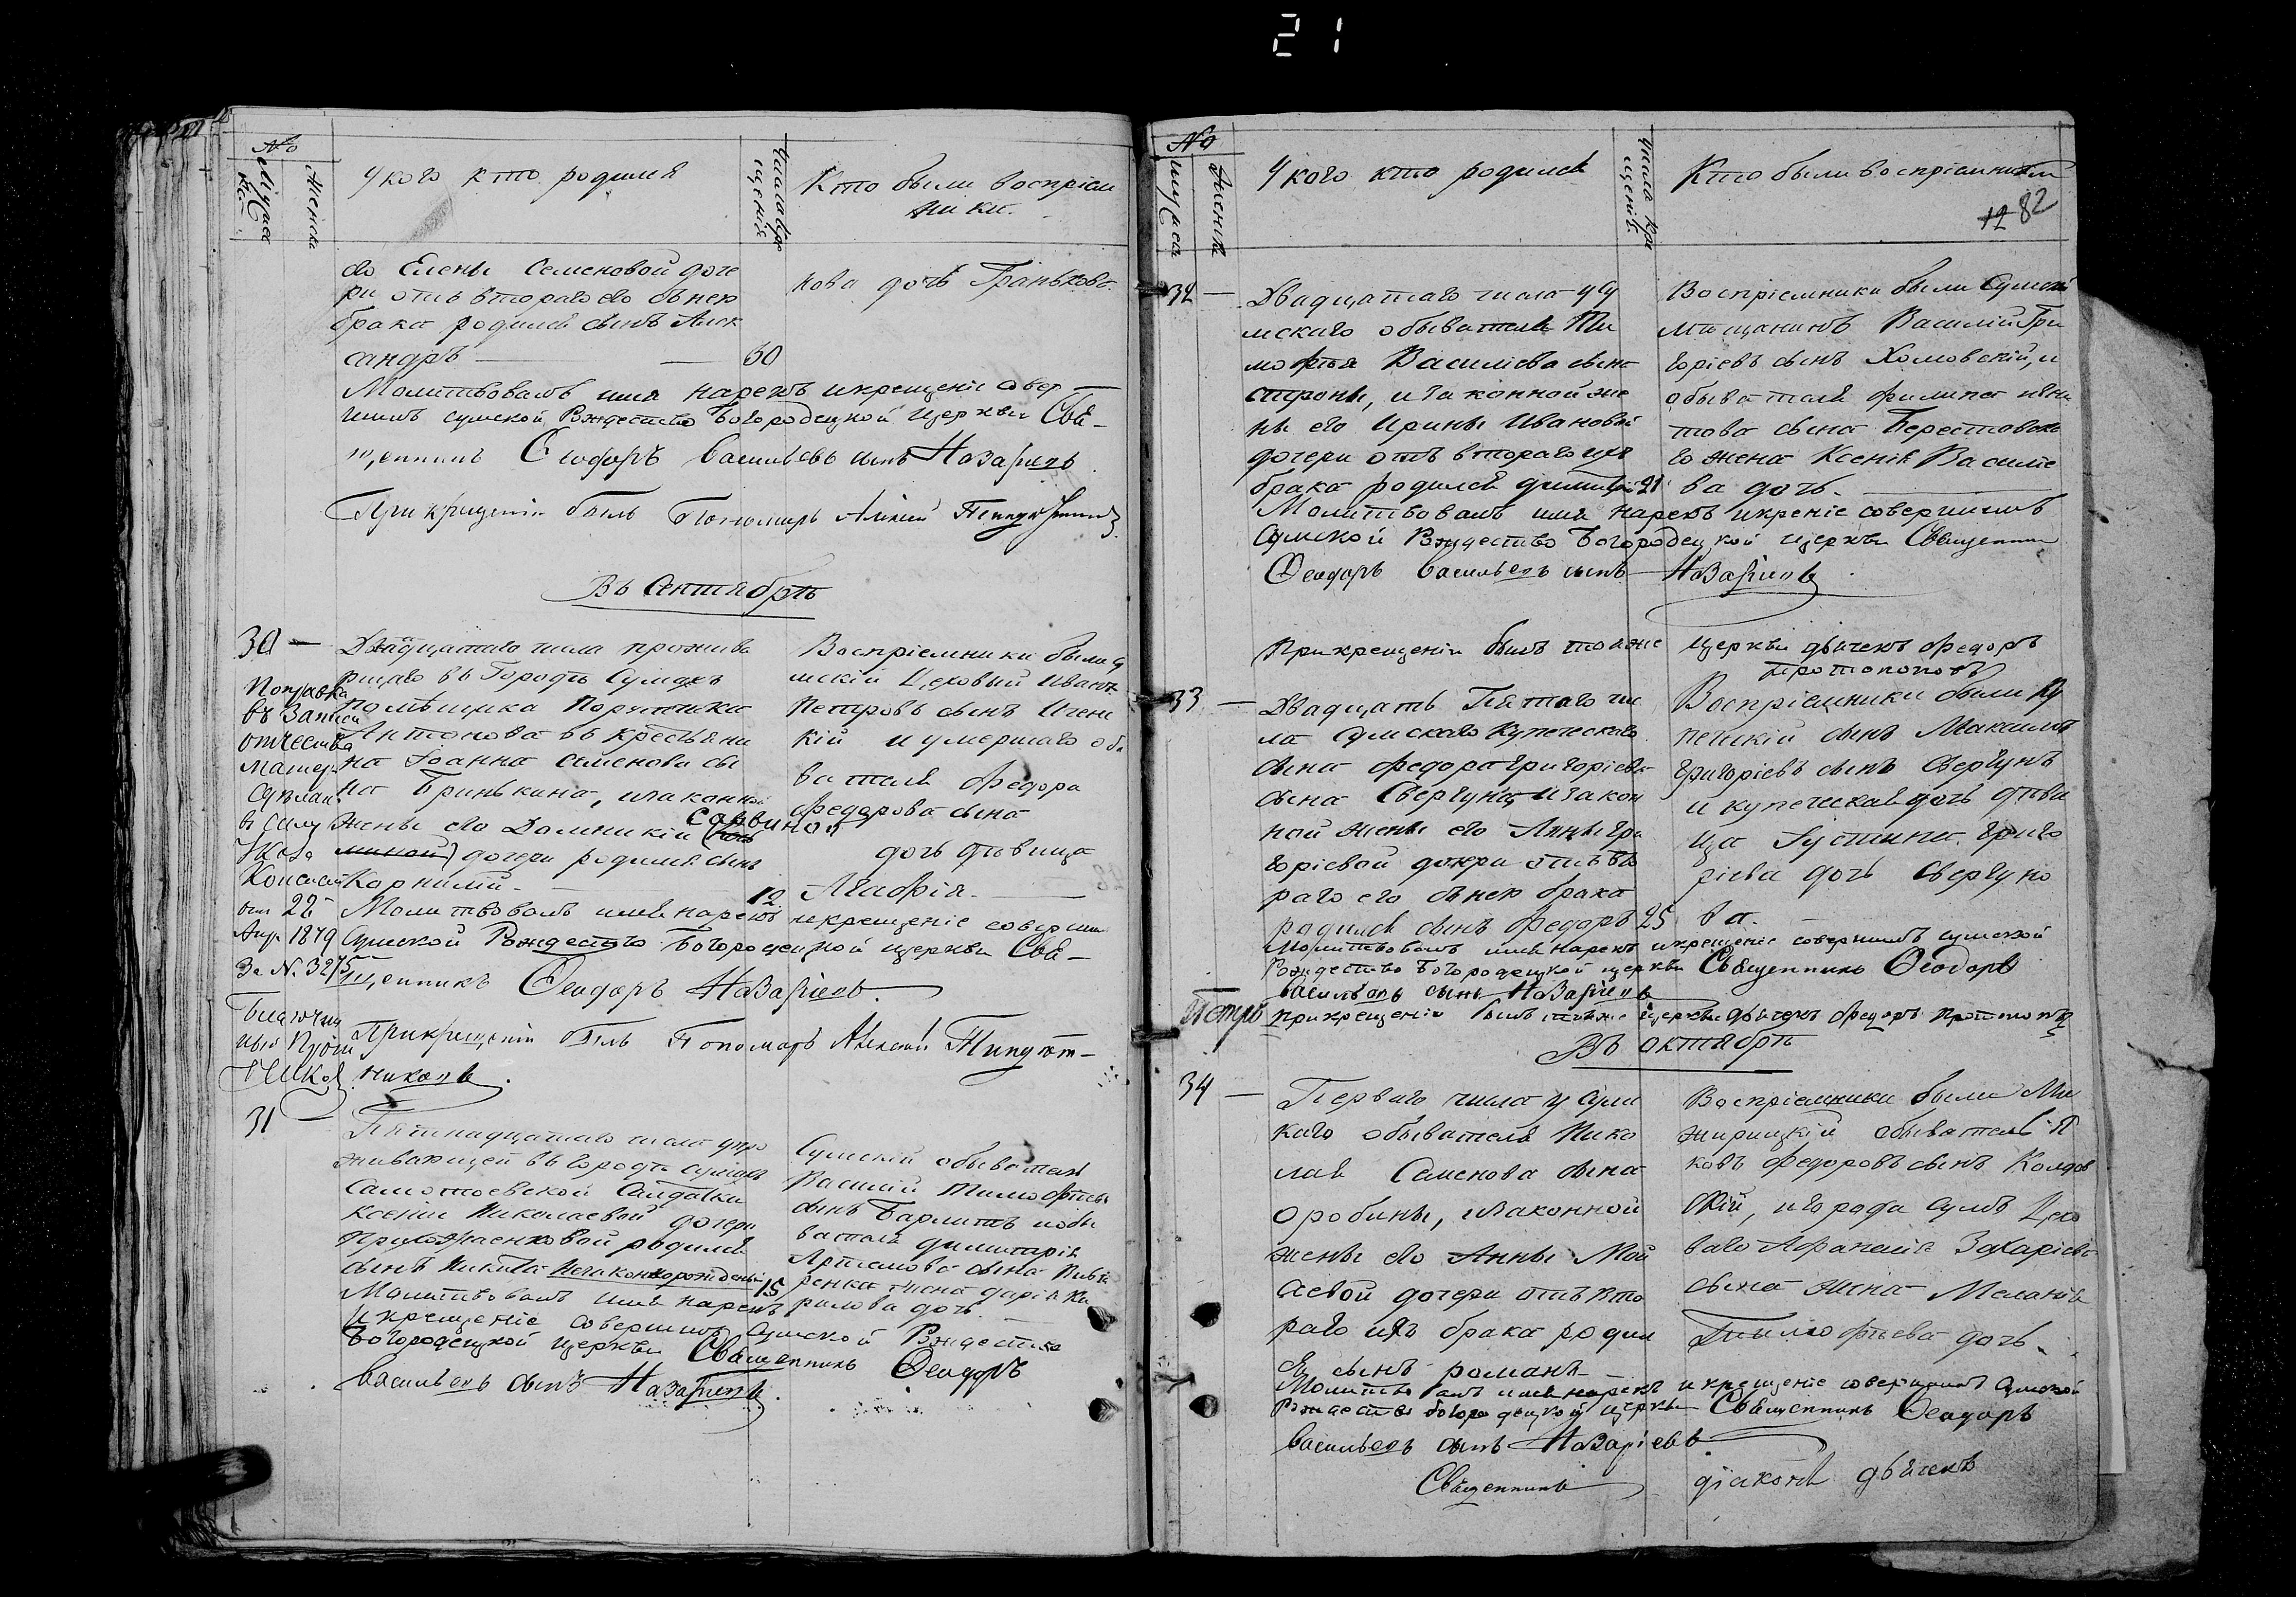 21
№
Мужеска
Женска
У кого кто родился
Числа кре
щенія
Кто были воспріем
ники.
его Елены Семеновой доче
ри отъ втораго его съ нею
брака родился сынъ Алек
сандръ — 30
кова дочь
Молитвовалъ имя нарекъ и крещеніе совер
шилъ сумской Рждество Богородецкой церкви Свя-
щенникъ Ѳеодоръ Васильевъ сынъ Назарьевъ
При крещеніи былъ Пономарь Алексей
Въ Сентябрѣ
30 —
Двадцатаго числа прожива
ющаго въ Городѣ Сумахъ
помѣщика Порутчика
Антонова съ крестьяни
на Іоанна Семенова сы
на Гринькина, и законной
жены его Домникіи Саввиной
дочери родился сынъ
Корнилій — 12
Воспріемники были су
мскій Цеховый Иванъ
Петровъ сынъ
кій и умершаго обы
вателя Федора
Федорова сына
дочь дѣвица
Агафія.
Поправка
въ Записи
отчества
матери
сдѣлана
въ силу
Указа
Консист
отъ 22
Апр. 1879
За № 3275
Благочин
ный Прот
Молитвовалъ имя нарекъ и крещеніе соверши
Сумской Рождество Богородецкой церкви Свя-
щенникъ Ѳеодоръ Назарьевъ.
При крещеніи былъ Пономарь Алексей
31
Пятинадцатаго числа у про
живающей въ городѣ Сумахъ
Салдатки
Ксеніи Николаевой дочери
родился
сынъ Никита незаконнорожденый 15
Сумскій обыватель
Василій Тимофѣевъ
сынъ и обы
вателя Димитрія
Артемова сына
жена Дарія Ки
рилова дочь.
Молитвовалъ имя нарекъ
и крещеніе совершилъ Сумской Рждество
Богородецкой церкви Священникъ Ѳеодоръ
Васильевъ сынъ Назарьевъ.
№
Мужеска
Женска
У кого кто родился
Числа кре
щенія.
Кто были воспріемники
12 82
32 —
Двадцатаго числа у Су
мскаго обывателя Ти
мофѣя Василіева сына
и законной же
ны его Ирины Ивановой
дочери отъ втораго ихъ
брака родился Димитрій 21
Воспріемники были Сумскій
мѣщанинъ Василій Гри
горіевъ сынъ Холовскій, и
обывателя Филипа
това сына Берестовска
го жена Ксенія Василіе
ва дочь.
Молитвовалъ имя нарекъ и креніе совершилъ
Сумской Рждество Богородецкой церкви Священник
Ѳеодоръ Васильевъ сынъ Назарьевъ.
При крещеніи былъ тояже церкви дьячекъ Федоръ
Протопоповъ
33 —
Двадцать Пятаго чи
сла Сумскаго Купеческаго
сына Федора Григоріева
сына Свергуна, и закон
ной жены его Анны Гри
горіевой дочери отъ вто
раго его съ нею брака
родился сынъ Федоръ 25
Воспріемники были Ку
печскій сынъ Максимъ
Григоріевъ сынъ Свергунъ
и купеческая дочь дѣви
ца Іустина Григо
ріева дочь Свергуно
ва.
Молитвовалъ имя нарекъ и крещеніе совершилъ сумской
Рождество Богородецкой церкви Священникъ Ѳеодоръ
Васильевъ сынъ Назарьевъ
При крещеніи былъ тояже церкви дьячекъ Федоръ Протопоп
Въ Октябрѣ
34 —
Перваго числа у Сум
скаго обывателя Нико
лая Семенова сына
Оробины, и законной
жены его Анны Мои
сеевой дочери отъ вто
раго ихъ брака роди
ся сынъ Романъ
Воспріемники были Ми
жирицкій обыватель Я
ковъ Федоровъ сынъ
скій, и города Сумъ Цехо
ваго Афанасія Захаріева
сына жена Меланія
Тимофѣева дочь.
Молитвовалъ имя нарекъ и крещеніе совершилъ Сумской
Рждество богородецкой церкви Священникъ Ѳеодоръ
Васильевъ сынъ Назаріевъ.
Священникъ діаконъ дьячекъ